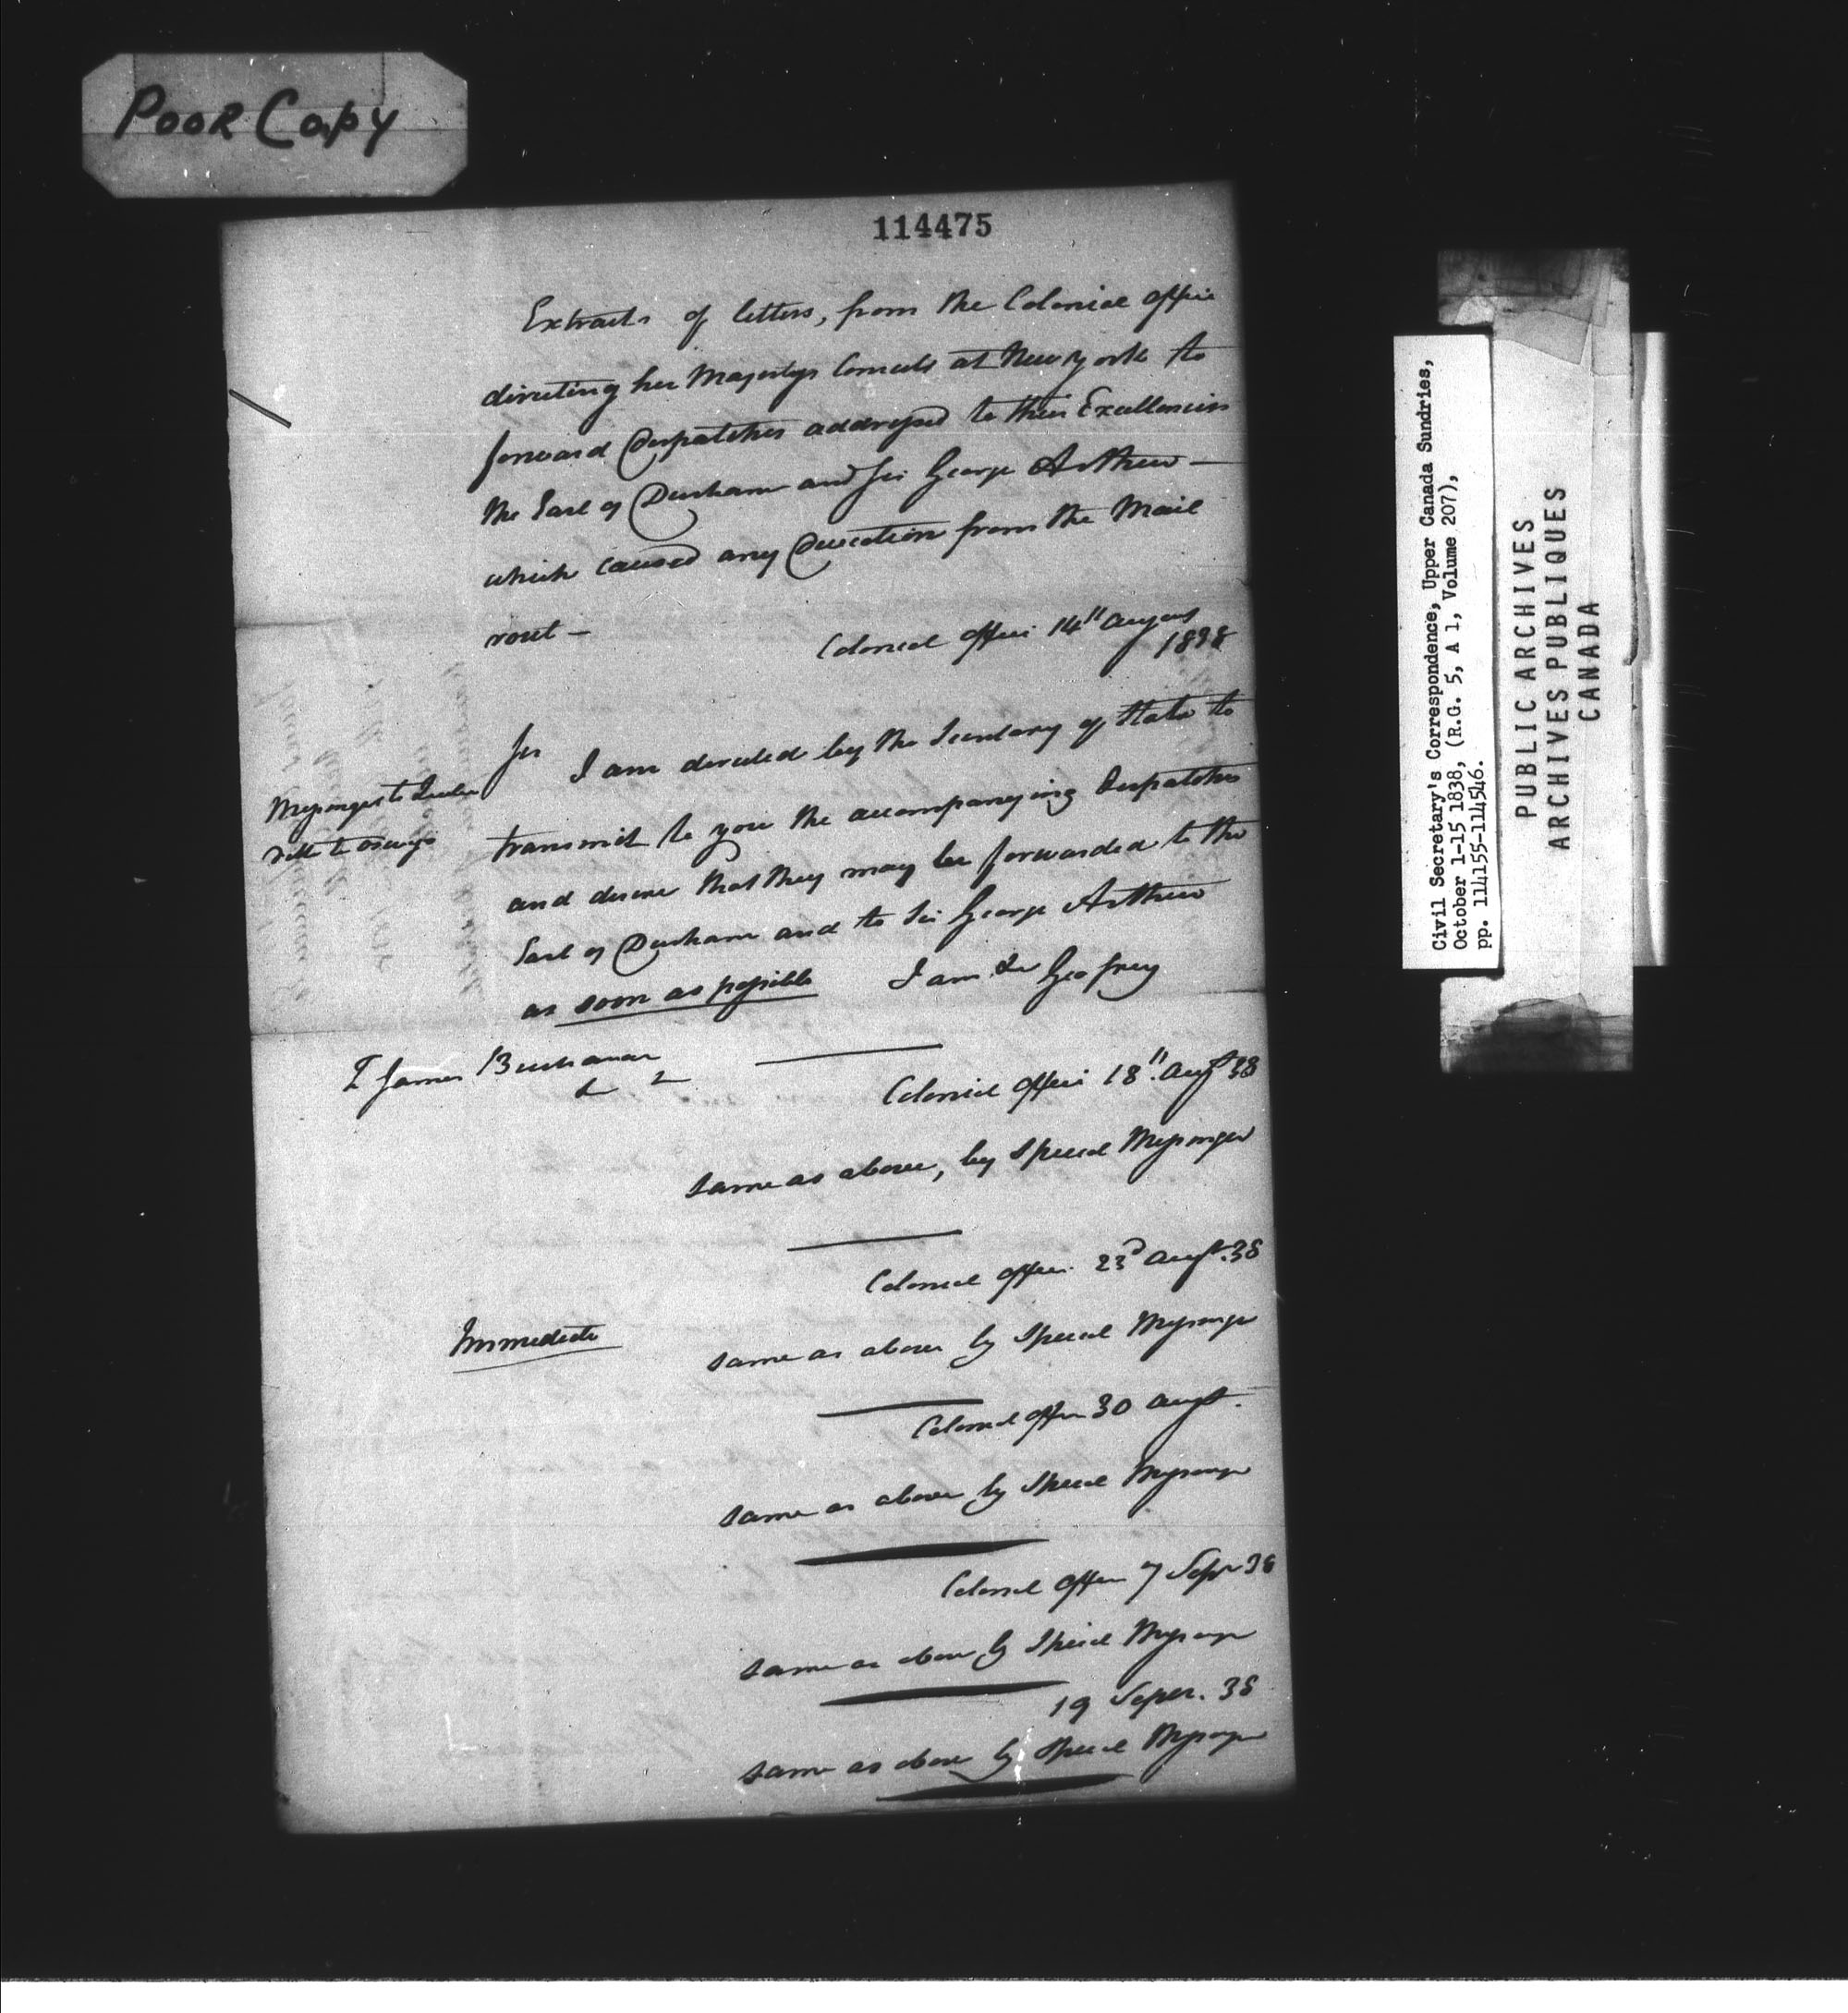 POOR COPY
114475
Extracts of letters, from the Colonial Office
directing her Majestys Consuls at New york to
forward Despatches addressed to their Excellencies
the Earl of Durham and Sir George Arthur —
which caused any Deviation from the Mail
rout —
Colonial Office 14" August
1838
Sir
I am directed by the Secretary of State to
Messenger to Quebec
transmit to you the accompanying Despatches
ditto to Oswego
and desire that they may be forwarded to the
Earl of Durham and to Sir George Arthur
as soon as possible I am &c Geo Grey
To James Buchanan
& &
Colonial Office 18" Augt 38
same as above, by Special Messenger
Colonial Office 23d Augt. 38
Immediate
same as above by Special Messenger
Colonial Office 30 Augt.
same as above by Special Messenger
Colonial Office 7 Sepr 38
same as above by Special Messenger
19 Sepr. 38
same as above by Special Messenger
Civil Secretary's Correspondence, Upper Canada Sundries,
October 1-15 1838, (R.G. 5, A 1, Volume 207),
pp. 114155-114546.
PUBLIC ARCHIVES
ARCHIVES PUBLIQUES
CANADA